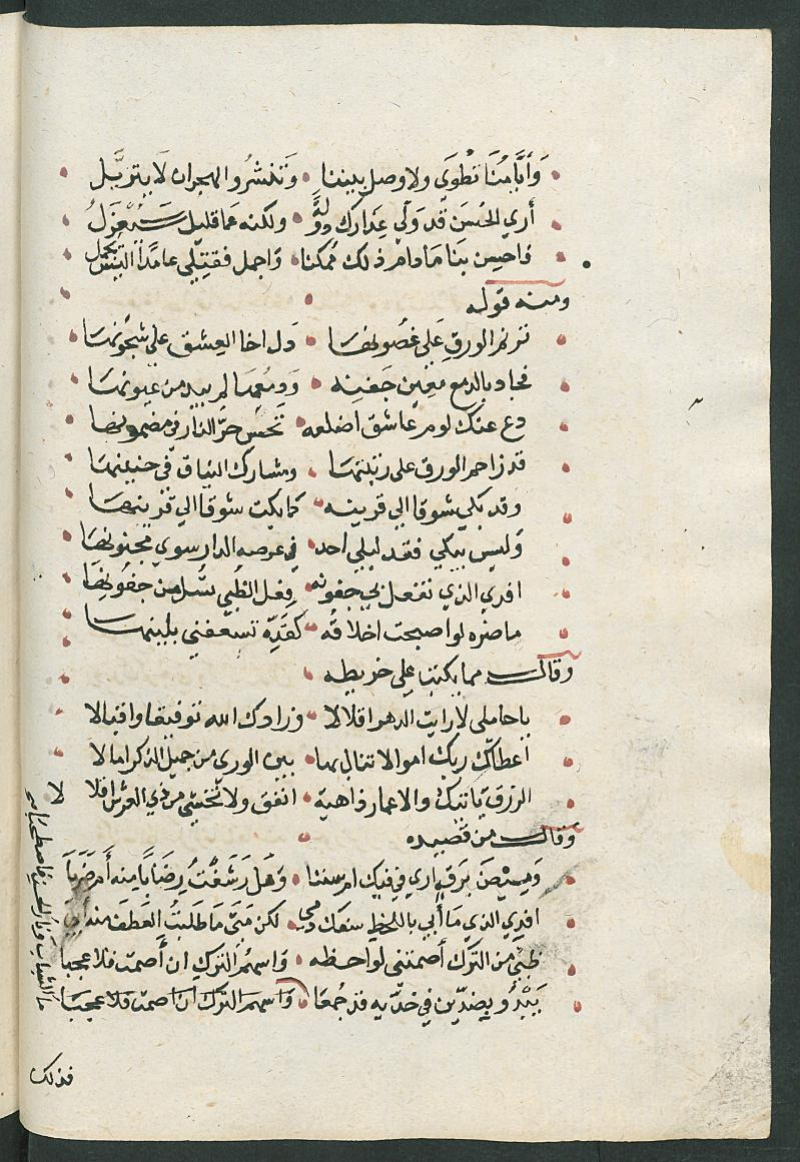 وَأَيَّامُنَا تطْوَى ولا وصل بيننا وَتنشرُ والهجران لَا يتزيَّل
أري الحُسَن قد وَلّي عِذارك دولةً ولكنه عما قليل سَتُعْزَلُ
فاحسِن بنَا مَا دام ذلك مُمكنا وَاجمل فقتلي عامدًا ليسَ يجمل
ومنه قوله
ترنم الورقِ عَلى غصُونهَا دَل اخا العِشق على شجُونهَا
فجاد بالدمع مَعِين جَفنِه وَ لم يبد من عيونهَا
دع عنك لوم عاشق اضلعه تحس حرَّ النار في مضمونها
قد زاحم الورق على رنتهَا وشارك النياق في حنينهَا
وقد بكي شوقا الي قرينه كما بكت شوقا الي قرينهَا
وَليس يبكي فقد ليلي احد في عرصه الدار سوي مجنونها
افدي الذي تفعل بي جفونه فِعل الظُبي تُسل من جفُونِهَا
ما ضره لو اصبحت اخلاقُه كقَدِّه تسعفني بلينهَا
وقال مما يكتب علي خريطه
يا حاملي لا رايت الدهر اقلالا وزادك الله توفيقا واقبالا
أعطاك ربك اموالا تنال بها بين الوري من جميل الذكر امالا
الرزق ياتيك والاعمار ذاهبة انفق ولا تخشي من ذي العرش اقلالا
وقال من قصيده
وَميضَ برَق اري في فيك ام شنبا وَهَل رَشَفْتُ رِضَابًا منه أم ضَرَبَا
افدي الذي مَا أبي باللحظ سفك دمي لكن مَتَى مَا طَلبتُ العَطفَ منه أبَى
ظبيٌ من التُرك أصمتني لواحظه وَاسهُمُ التركِ ان أصمت فلا عجبا
يَبْدُو بضدّين في خدّيه قد جُمعَا وَاسهم الترك ان اصمت فلا عجبَا
ماء الشباب ونار الحسن فاصطحبا
فذلك